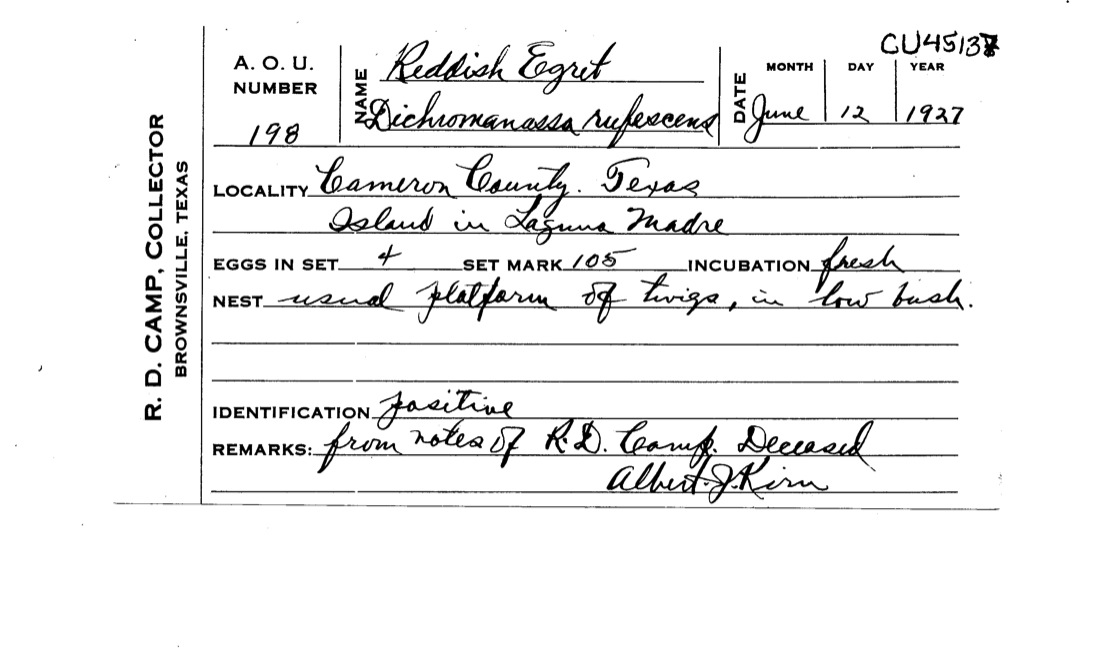 CU45137
A. O. U. NUMBER 198
NAME Reddish Egret
Dichromanassa rufescens
DATE MONTH DAY YEAR
June 12 1927
R. D. CAMP, COLLECTOR
BROWNSVILLE, TEXAS
LOCALITY Cameron County. Texas
Island in Laguna Madre
EGGS IN SET 4 SET MARK 105 INCUBATION fresh
NEST usual platform of twigs, in low bush.
IDENTIFICATION positive
REMARKS: from notes of R.D. Camp. Deceased
Albert J. Kirn